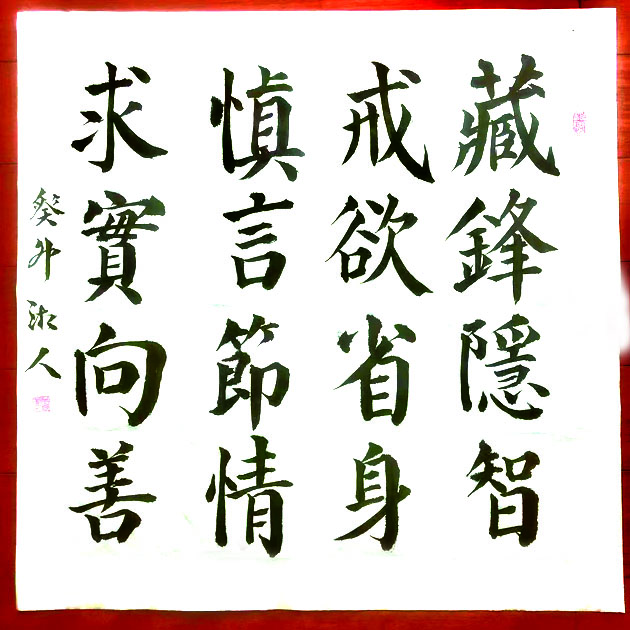 藏鋒隱智
戒欲省身
慎言節情
求實向善
癸卯湘人